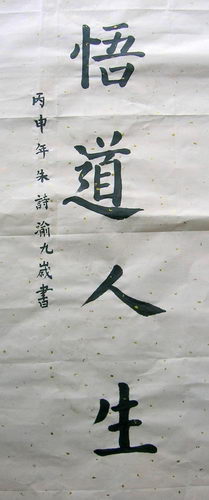 悟道人生
丙申年朱詩渝九歲書